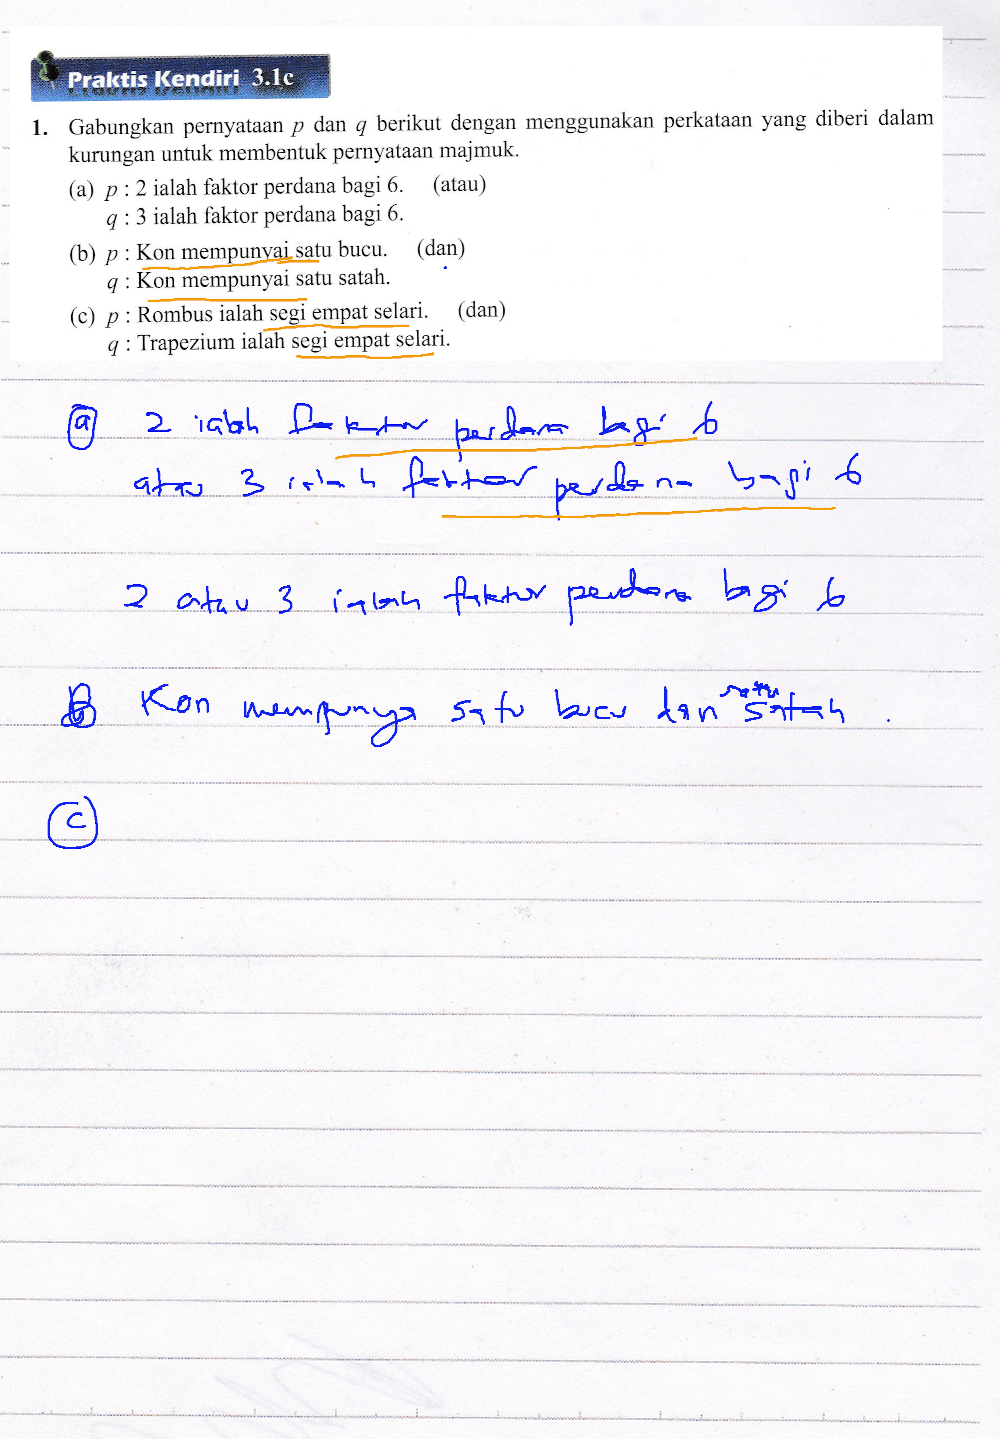 Praktis Kendiri 3.1c
1. Gabungkan pernyataan p dan q berikut dengan menggunakan perkataan yang diberi dalam
kurungan untuk membentuk pernyataan majmuk.
(a) p : 2 ialah faktor perdana bagi 6. (atau)
q : 3 ialah faktor perdana bagi 6.
(b) p : Kon mempunyai satu bucu. (dan)
q : Kon mempunyai satu satah.
(c) p : Rombus ialah segi empat selari. (dan)
q : Trapezium ialah segi empat selari.
(a) 2 ialah faktor perdana bagi 6
atau 3 ialah faktor perdana bagi 6
2 atau 3 ialah faktor perdana bagi 6
(b) Kon mempunya satu bucu dan satu satah .
(c)